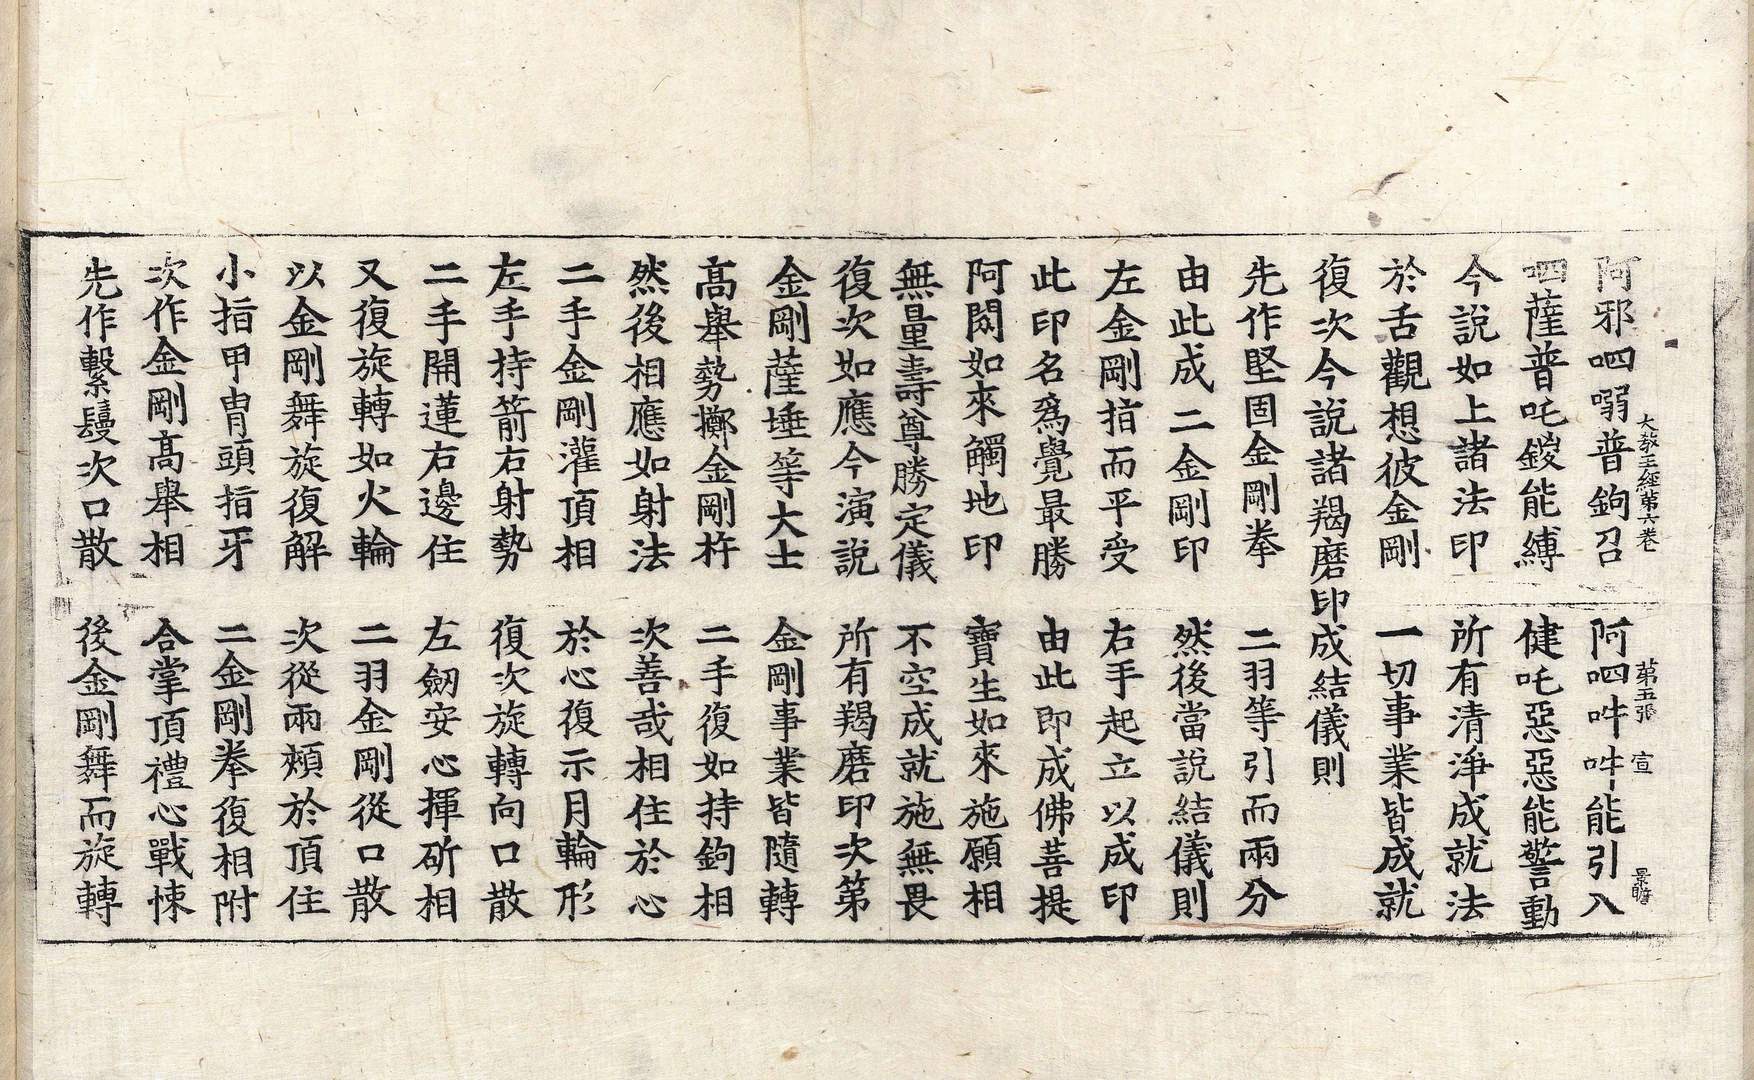 阿邪呬嚩普鉤召　阿呬吽吽能引入
大教王經第六卷　第五張　宣　景瞻
呬薩普吒鑁能縛　健吒惡惡能警動
今說如上諸法印　所有清淨成就法
於舌觀想彼金剛　一切事業皆成就
復次今說諸羯磨印成結儀則
先作堅固金剛拳　二羽等引而兩分
由此成二金剛印　然後當說結儀則
左金剛指而平受　右手起立以成印
此印名爲覺最勝　由此即成佛菩提
阿閦如來觸地印　寶生如來施願相
無量壽尊勝定儀　不空成就施無畏
復次如應今演說　所有羯磨印次第
金剛薩埵等大士　金剛事業皆隨轉
高舉勢擲金剛杵　二手復如持鉤相
然後相應如射法　次善哉相住於心
二手金剛灌頂相　於心復示月輪形
左手持箭右射勢　復次旋轉向口散
二手開蓮右邊住　左劒安心揮斫相
又復旋轉如火輪　二羽金剛從口散
以金剛舞旋復解　次從兩頰於頂住
小指甲冑頭指牙　二金剛拳復相附
次作金剛高舉相　合掌頂禮心戰悚
先作繫鬘次口散　後金剛舞而旋轉